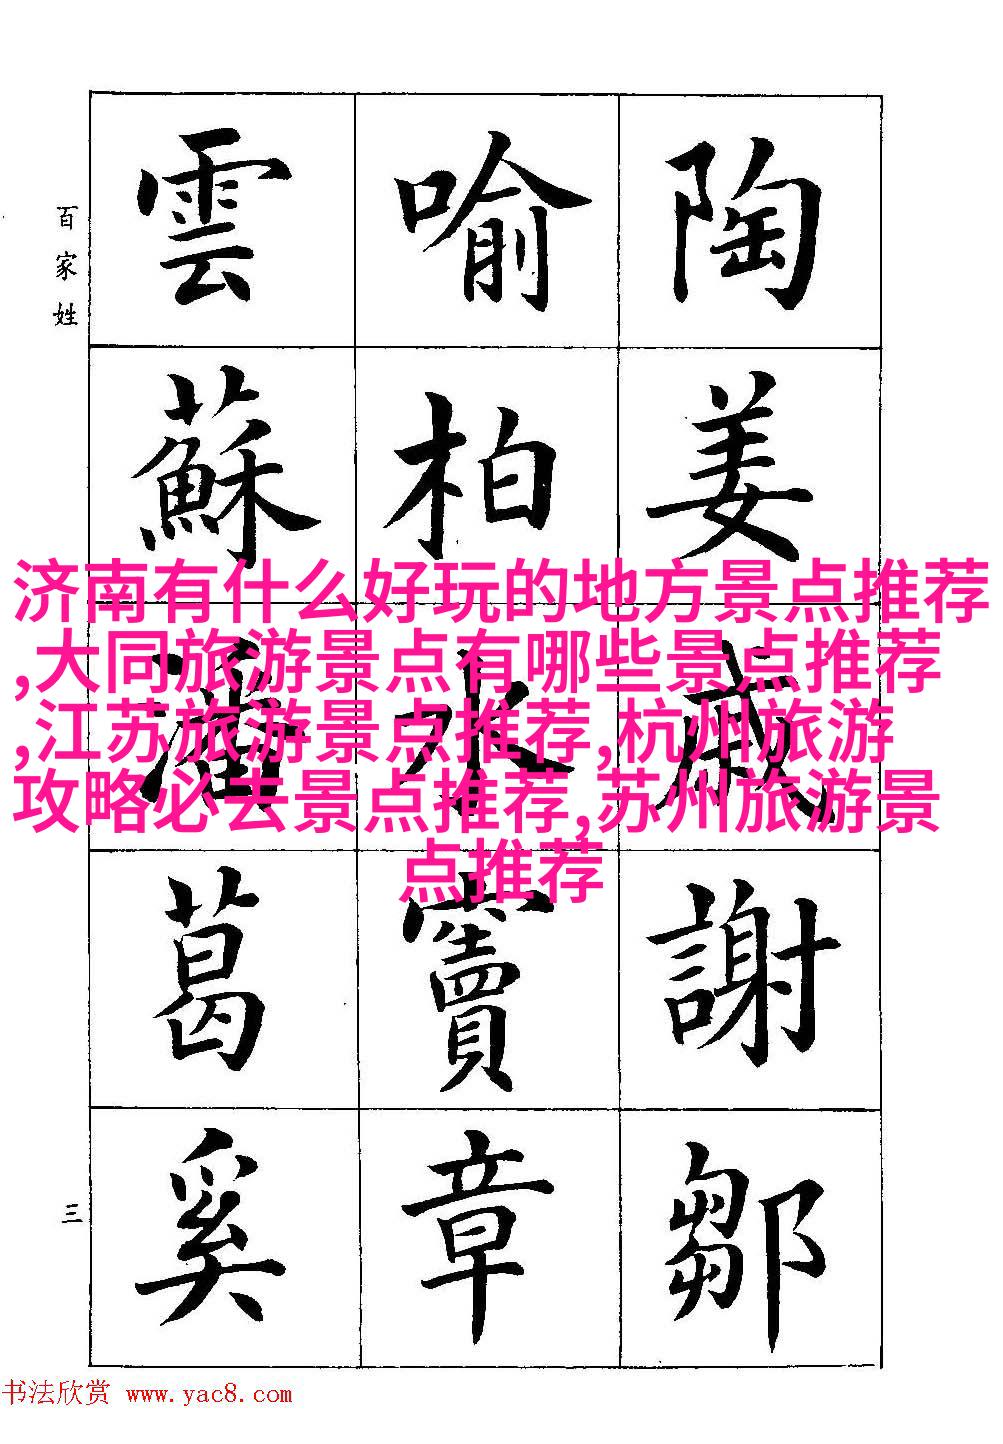 陶姜戚謝鄒
喻柏水竇章
雲蘇潘葛奚
百家姓
三
济南有什么好玩的地方景点推荐
,大同旅游景点有哪些景点推荐
,江苏旅游景点推荐,杭州旅游
攻略必去景点推荐,苏州旅游景
点推荐
书法欣赏 www.yac8.com